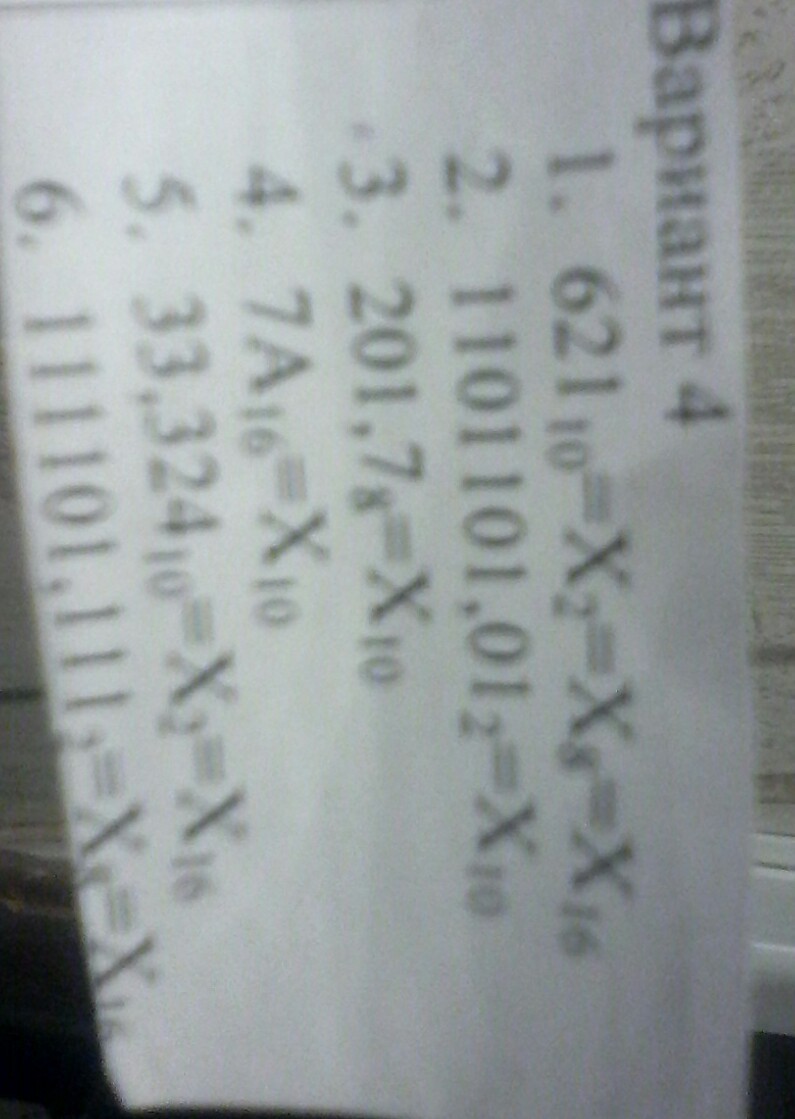 Вариант 4
1. 621₁₀=X₂=X₈=X₁₆
2. 1101101,01₂=X₁₀
3. 201,7₈=X₁₀
4. 7A₁₆=X₁₀
5. 33,324₁₀=X₂=X₁₆
6. 111101,111₂=X₈=X₁₆